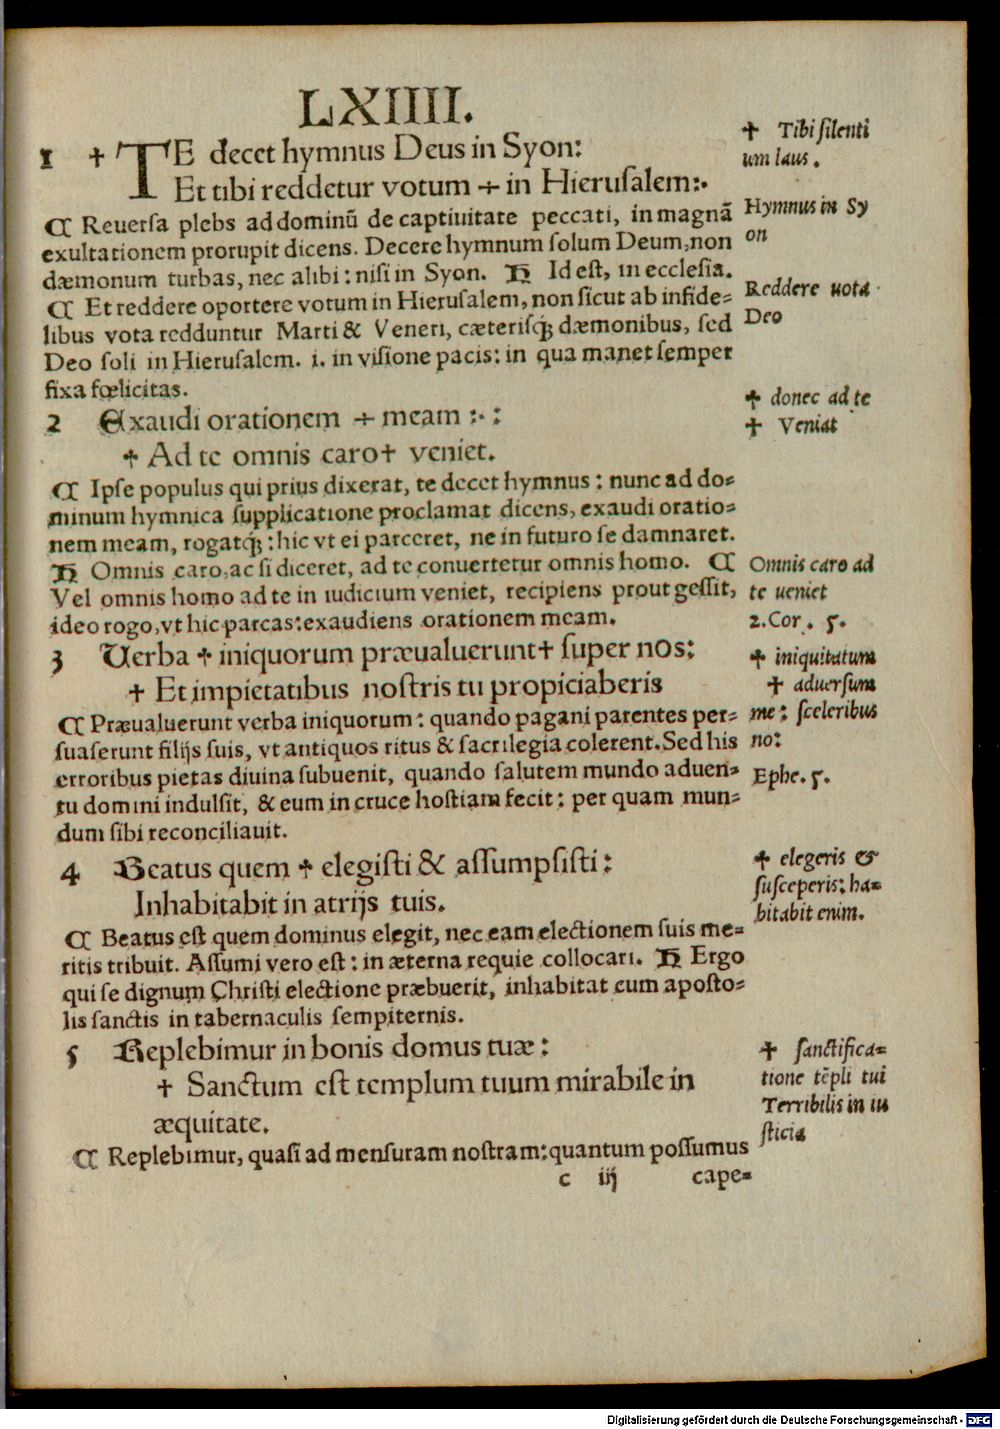 LXIIII.
1 ✝ TE decet hymnus Deus in Syon:
Et tibi reddetur votum ⸓ in Hierusalem:.
¶ Reuersa plebs ad dominū de captiuitate peccati, in magnā
exultationem prorupit dicens. Decere hymnum solum Deum, non
dæmonum turbas, nec alibi: nisi in Syon. Id est, in ecclesia.
¶ Et reddere oportere votum in Hierusalem, non sicut ab infide=
libus vota redduntur Marti & Veneri, cæterisq; dæmonibus, sed
Deo soli in Hierusalem. i. in visione pacis: in qua manet semper
fixa fœlicitas.
2 Exaudi orationem ⸓ meam :·:
✝ Ad te omnis caro✝ veniet.
¶ Ipse populus qui prius dixerat, te decet hymnus: nunc ad do=
minum hymnica supplicatione proclamat dicens, exaudi oratio=
nem meam, rogatq;: hic vt ei parceret, ne in futuro se damnaret.
Omnis caro, ac si diceret, ad te conuertetur omnis homo. ¶
Vel omnis homo ad te in iudicium veniet, recipiens prout gessit,
ideo rogo, vt hic parcas: exaudiens orationem meam.
3 Verba ✝ iniquorum præualuerunt✝ super nos:
✝ Et impietatibus nostris tu propiciaberis
¶ Præualuerunt verba iniquorum: quando pagani parentes per=
suaserunt filijs suis, vt antiquos ritus & sacrilegia colerent. Sed his
erroribus pietas diuina subuenit, quando salutem mundo aduen=
tu domini indulsit, & eum in cruce hostiam fecit: per quam mun=
dum sibi reconciliauit.
4 Beatus quem ✝ elegisti & assumpsisti:
Inhabitabit in atrijs tuis.
¶ Beatus est quem dominus elegit, nec eam electionem suis me=
ritis tribuit. Assumi vero est: in æterna requie collocari. Ergo
qui se dignum Christi electione præbuerit, inhabitat cum aposto=
lis sanctis in tabernaculis sempiternis.
5 Replebimur in bonis domus tuæ:
✝ Sanctum est templum tuum mirabile in
æquitate.
¶ Replebimur, quasi ad mensuram nostram: quantum possumus
c iij cape=
✝ Tibi silenti
um laus.
Hymnus in Sy
on
Reddere uota
Deo
✝ donec ad te
✝ Veniat
Omnis caro ad
te ueniet
2. Cor. 5.
✝ iniquitatum
✝ aduersum
me: sceleribus
no:
Ephe. 5.
✝ elegeris &
susceperis: ha=
bitabit enim.
✝ sanctifica=
tione tēpli tui
Terribilis in iu
sticia
Digitalisierung gefördert durch die Deutsche Forschungsgemeinschaft - DFG